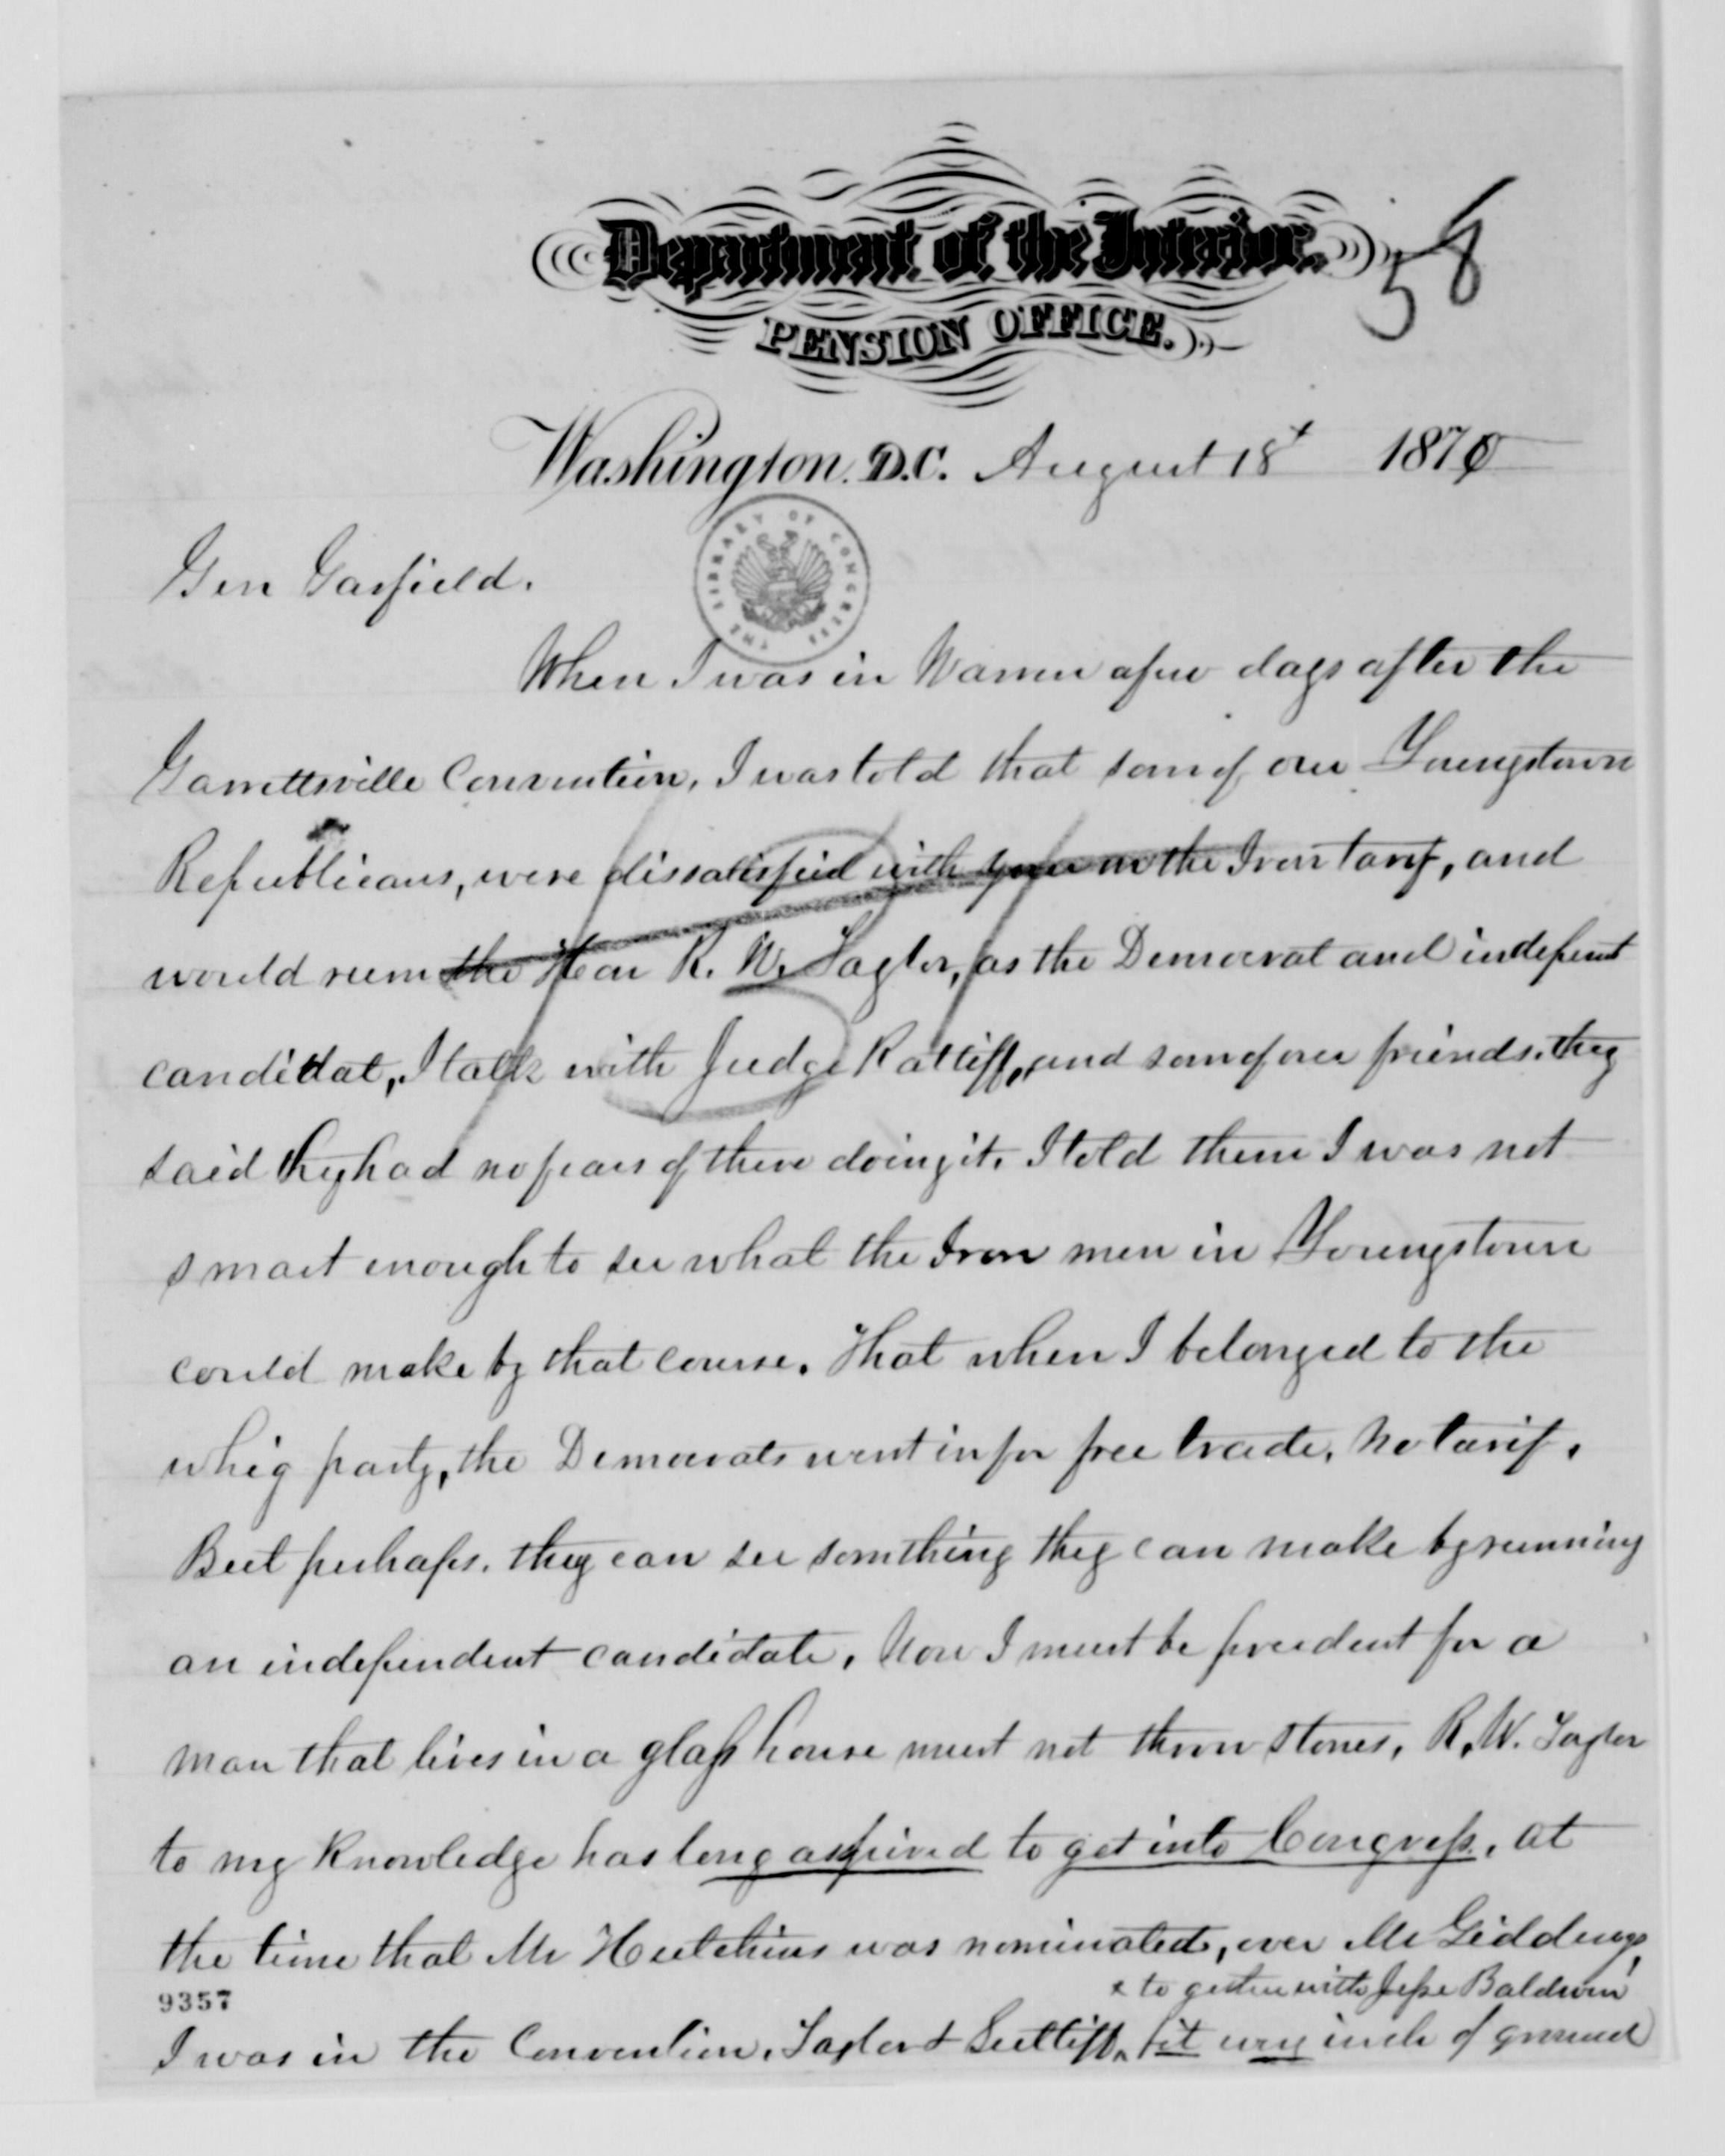 58
Department of the Interior.
PENSION OFFICE.
Washington. D.C. August 18t 1870
THE LIBRARY OF CONGRESS
Gen Garfield.
When I was in Warren afew days after the
Garrettsville Convention, I was told that som of our Youngstown
Republicans, were dissatisfied with you on the Iron tarif, and
would run the Hon R. W. Taylor, as the Democrat and indepent
candidat, I talk with Judge Ratliff, and som of our friends. they
said they had no fears of there doing it. I told them I was not
smart enough to see what the Iron men in Youngstown
could make by that course. That when I belonged to the
whig party, the Democrats went in for free trade, no tarif.
But perhaps. they can see somthing they can make by running
an independent candidate, Now I must be prudent for a
man that lives in a glass house must not throw stones, R. W. Taylor
to my knowledge has long aspired to get into Congress, at
the time that Mr Hutchins was nominated, over Mr Giddings,
& to gether with Jesse Baldwin
9357
I was in the Convention, Taylor & Sutliff, fit evry inch of ground